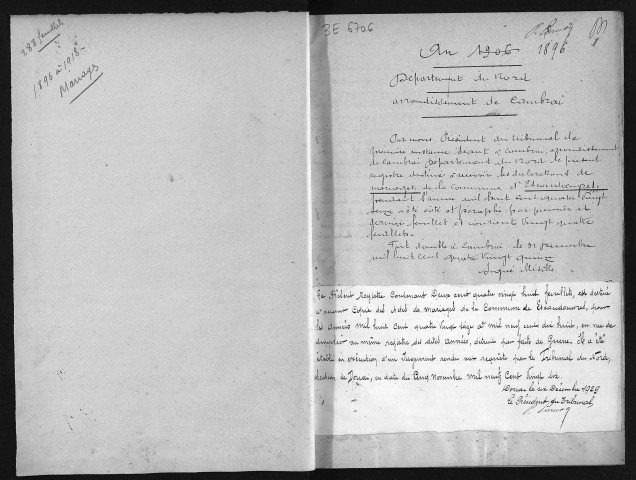 288 feuillets
1896 à 1918
Mariages
3E 6706
An 1906
1896
Département du Nord
arrondissement de Cambrai
Par nous Président du tribunal de
première instance séant à Cambrai, arrondissement
de Cambrai Département du Nord le présent
registre destiné à recevoir les déclarations de
mariages de la Commune d' Escaudoeuvres
pendant l'année mil huit cent quatre vingt
seize a été côté et paraphé par premier et
dernier feuillet et contient vingt quatre
feuillets.
Fait double à Cambrai le 31 Décembre
mil huit cent quatre vingt quinze
Signé
Le Présent Registre Contenant Deux cent quatre vingt huit feuillets, est destiné
à recevoir Copie des Actes de mariages de la Commune de Escaudoeuvres, pour
les Années mil huit Cent quatre vingt seize à mil neuf cent dix huit, en vue de
au même registre des dites années, détruit par faits de Guerre. Il a été
établi en exécution d'un Jugement rendu sur requête par le Tribunal du Nord,
section de Douai, en date du Cinq novembre mil neuf Cent Vingt six.
Douai le six Décembre 1929
Le Président du Tribunal,